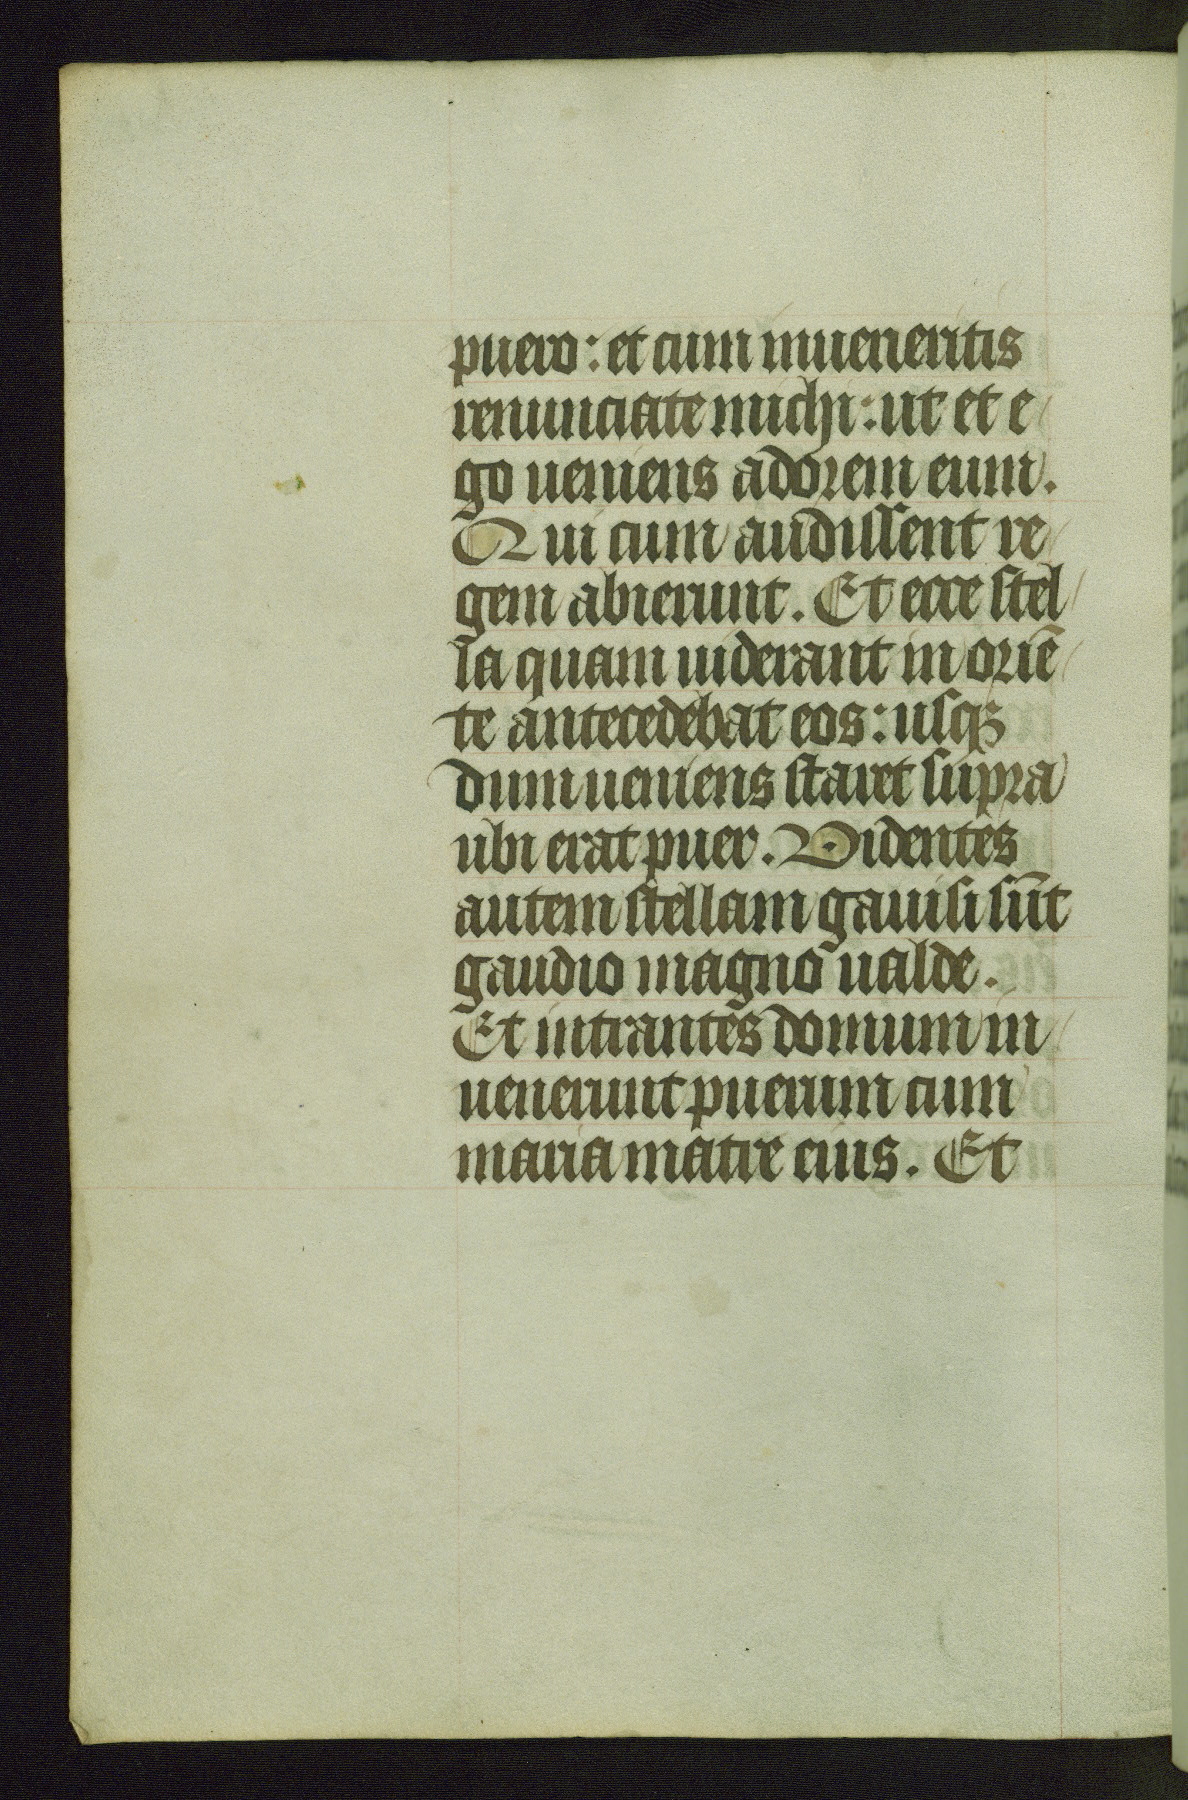 puero: et cum inueneritis
renunciate michi: ut et e
go ueniens adorem eum.
Qui cum audissent re
gem abierunt. Et ecce stel
la quam uiderant in oriē
te antecedebat eos: usqꝫ
dum ueniens staret supra
ubi erat puer. Videntes
autem stellam gauisi sūt
gaudio magno ualde.
Et intrantes domum in
uenerunt puerum cum
maria matre eius. Et